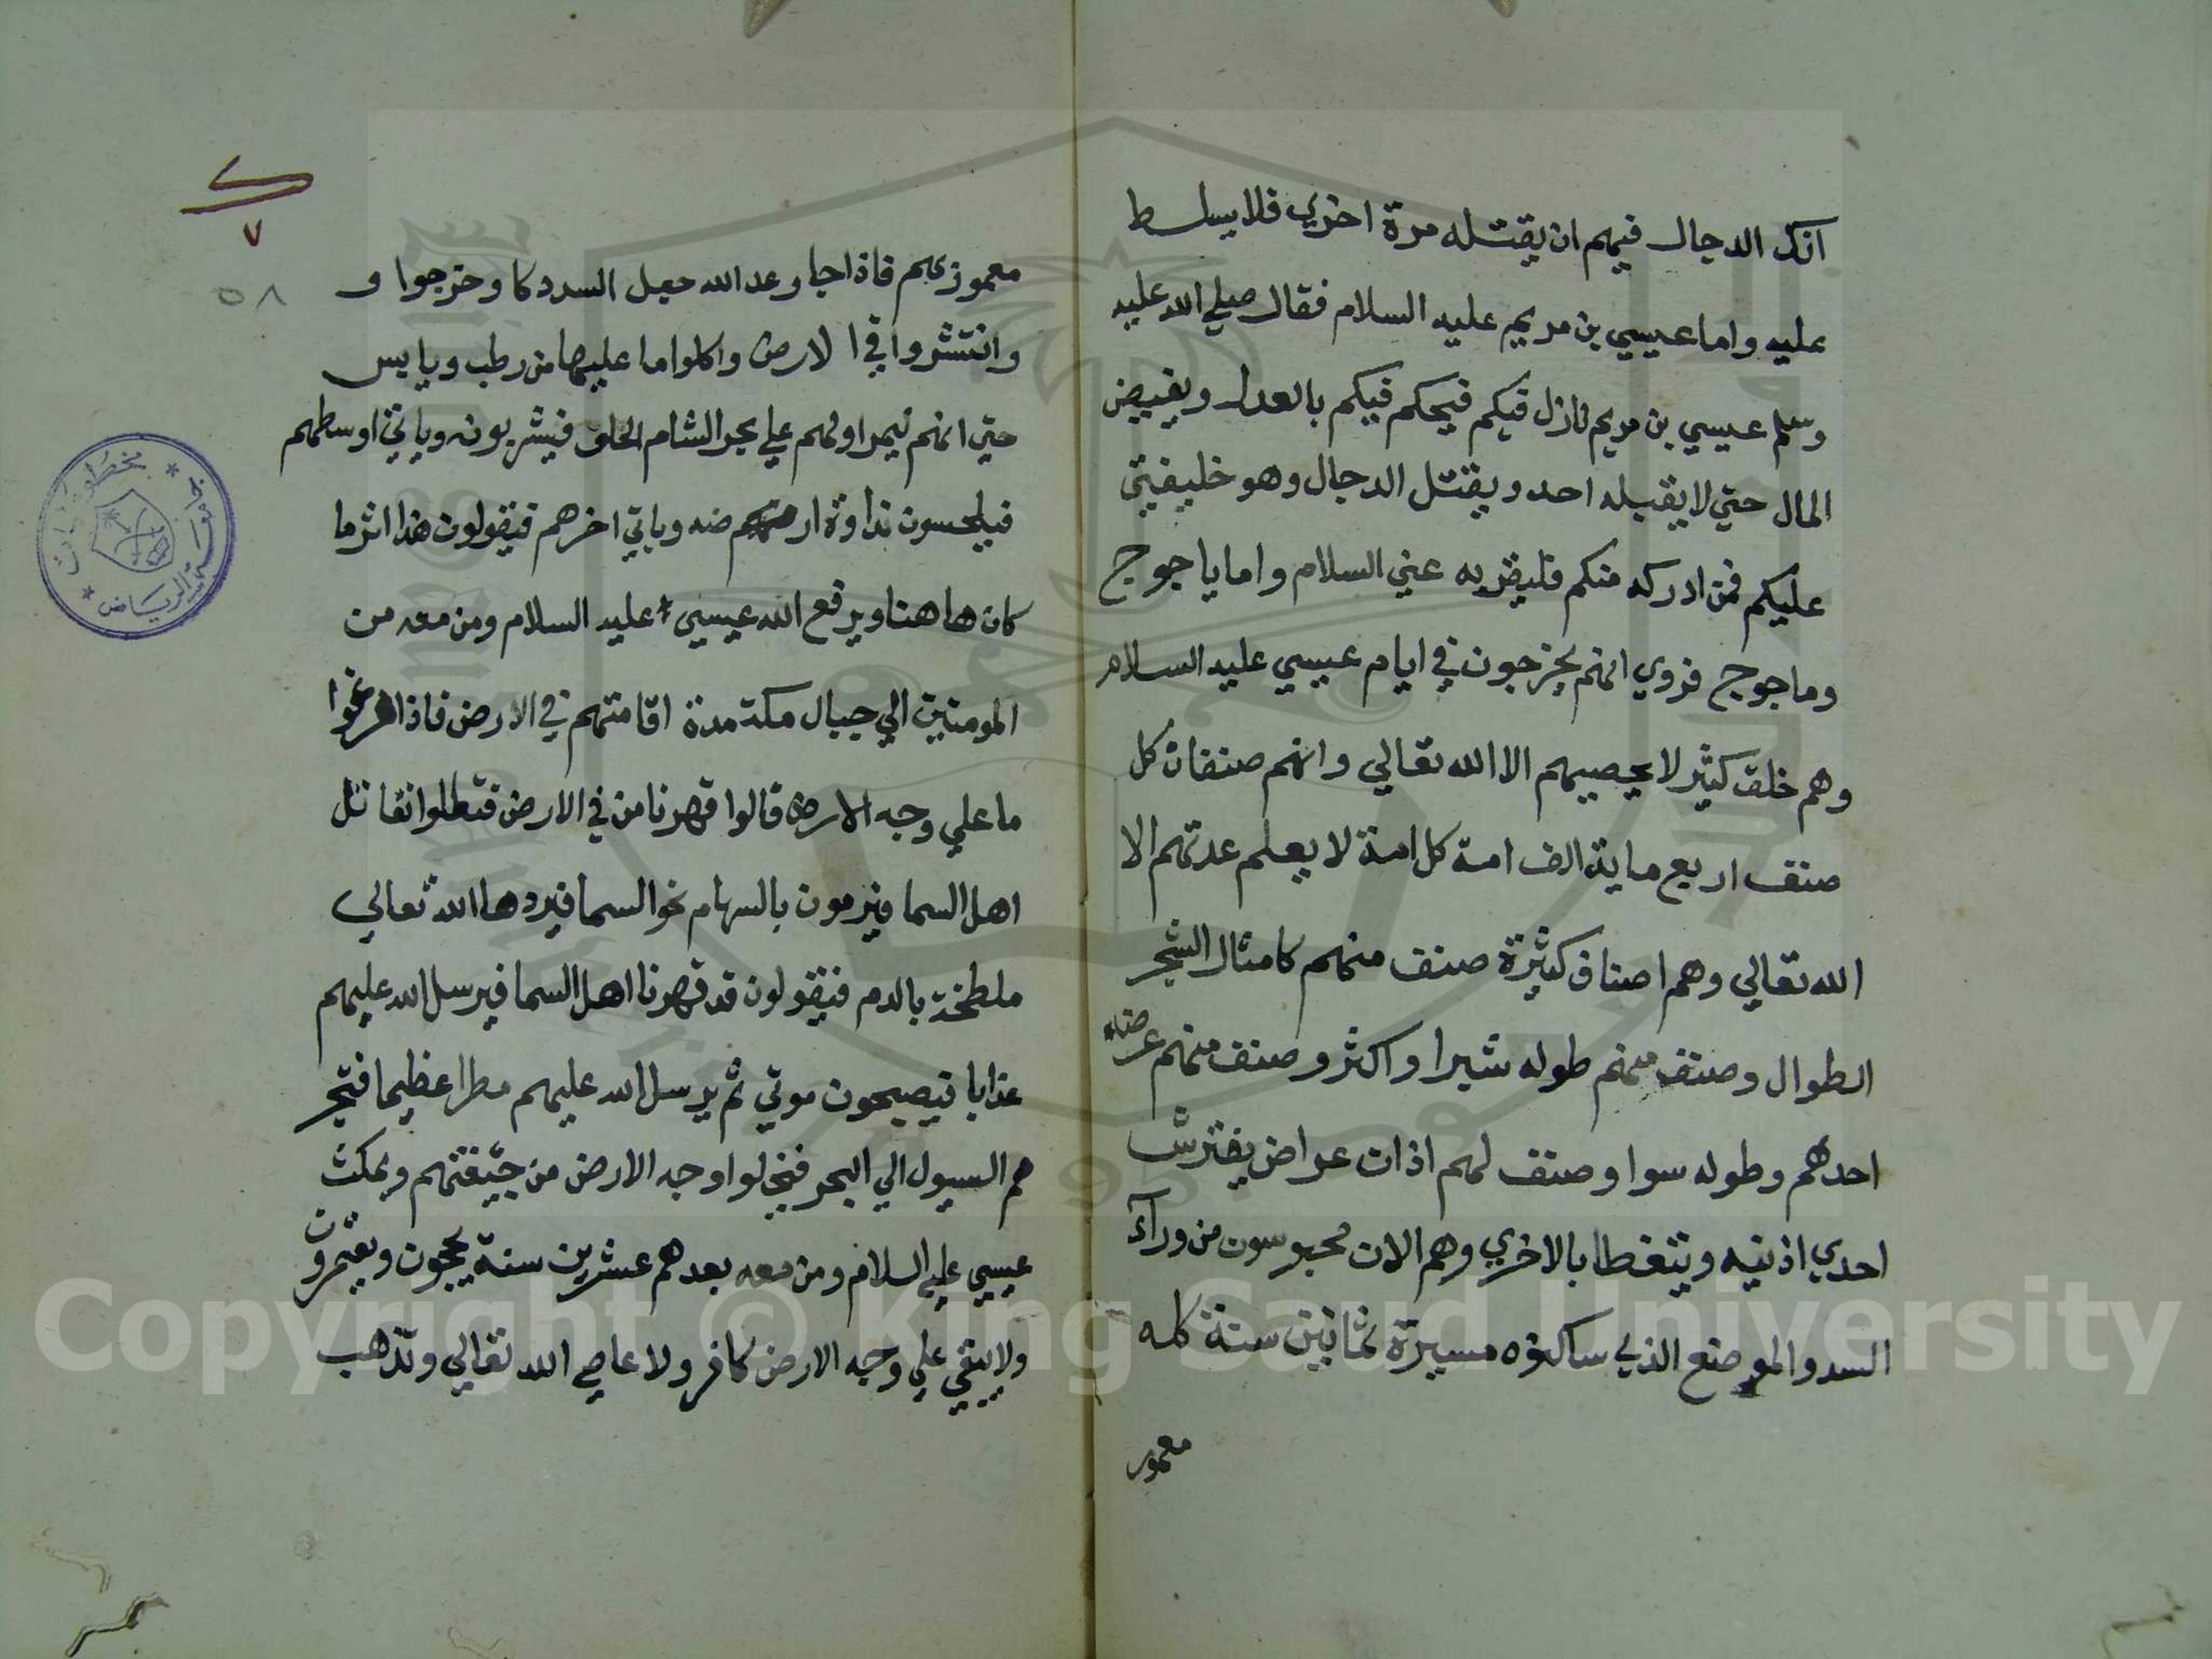 انك الدجال فيهم ان يقتله مرة اخري فلا يسلط
عليه واما عيسي بن مريم عليه السلام فقال صلي الله عليه
وسلم عيسي بن مريم نازل فيكم فيحكم فيكم بالعدل ويفيض
المال حتي لا يقبله احد ويقتل الدجال وهو خليفتي
عليكم فمن ادركه منكم فليقريه عني السلام واما ياجوج
وماجوج فروي انهم يخرجون في ايام عيسي عليه السلام
وهم خلق كثير لا يحصيهم الا الله تعالي وانهم صنفان كل
صنف اربع ماية الف امة كل امة لا يعلم عدتهم الا
الله تعالي وهم اصناف كثيرة صنف منهم كامثال الشجر
الطوال وصنف منهم طوله شبرا واكثر وصنف منهم عرضاء
احدهم وطوله سوا وصنف لهم اذات عراض يفترش
احدي اذنيه ويتغطا بالاخري وهم الان محبوسون من ورآء
السد والموضع الذي ساكنوه مسيرة ثمانين سنة كله
معمور
٧
٥٨
معمور بهم فاذا جا وعد الله جعل السد دكا وخرجوا و
وانتشروا في الارض واكلوا ما عليها من رطب ويابس
حتي انهم ليمر اولهم علي بحر الشام الحلق فيشربونه وياتي اوسطهم
فيلحسون نداوة ارضه وياتي اخرهم فيقولون هذا اثر ما
كان هاهنا ويرفع الله عيسي عليه السلام ومن معه من
المومنين الي جبال مكة مدة اقامتهم في الارض فاذا فرغوا
ما علي وجه الارض قالوا قهرنا من في الارض فتعالوا نقاتل
اهل السما فيرمون بالسهام نحو السما فيردها الله تعالي
ملطخة بالدم فيقولون قد قهرنا اهل السما فيرسل الله عليهم
عذابا فيصبحون موتي ثم يرسل الله عليهم مطرا عظيما فتجر
هم السيول الي البحر فيخلوا وجه الارض من جيفتهم ويمكث
عيسي عليه السلام ومن معه بعدهم عشرين سنة يحجون ويعتمرون
ولا يبقي علي وجه الارض كافر ولا عاصي الله تعالي وتذهب
مخطوطات
الرياض
Copyright © King Saud University